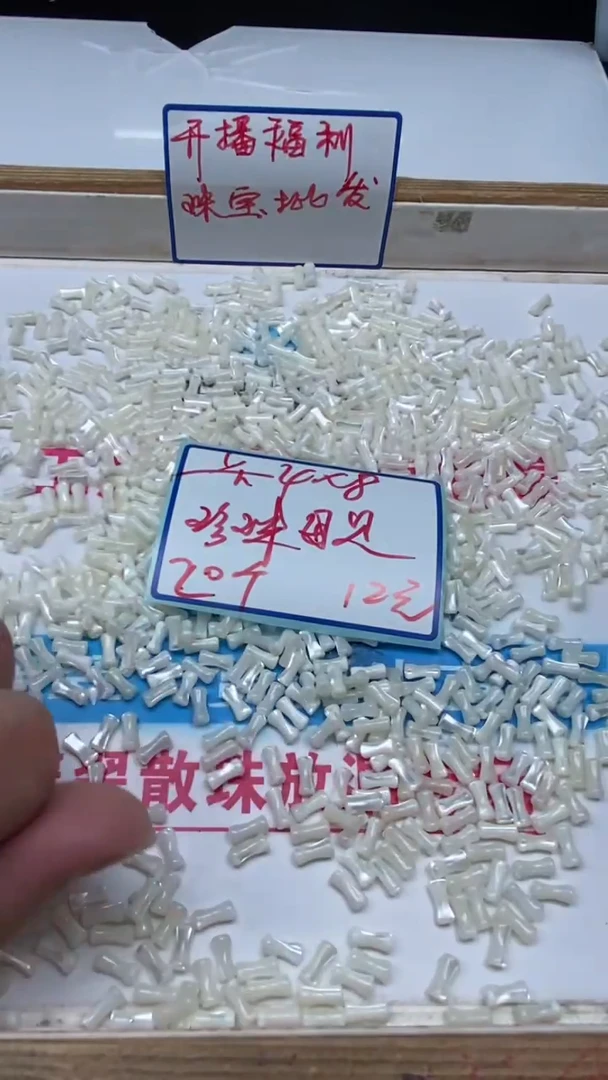 开播福利
珠宝批发
4x8
珍珠母贝
20个 12元
散珠放